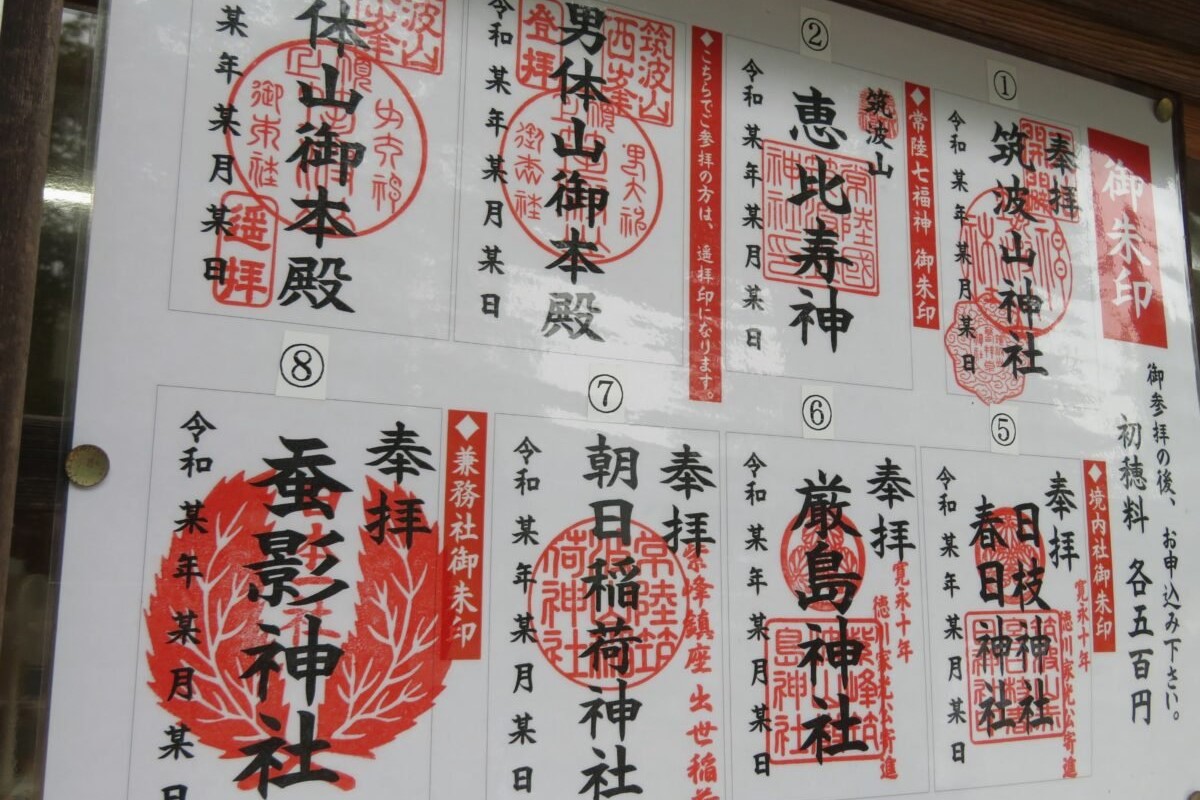 御朱印
御参拝の後、お申込み下さい。
初穂料 各五百円
①
奉拝
筑波山神社
令和某年某月某日
◆常陸七福神 御朱印
②
筑波山
恵比寿神
令和某年某月某日
◆こちらでご参拝の方は、遥拝印になります。
筑波山
西峯
登拝
男体山御本殿
令和某年某月某日
波山
体山御本殿
某年某月某日
遥拝
◆境内社御朱印
⑤
奉拝
寛永十年
徳川家光公寄進
日枝神社
春日神社
令和某年某月某日
⑥
奉拝
寛永十年
徳川家光公寄進
厳島神社
令和某年某月某日
⑦
奉拝
鎮座 出世稲
朝日稲荷神社
令和某年某月某日
◆兼務社御朱印
⑧
奉拝
蚕影神社
令和某年某月某日